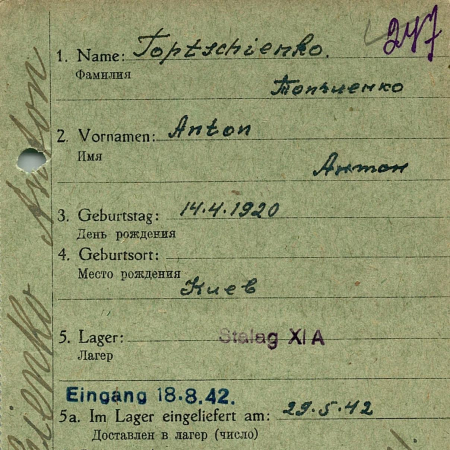 247
1. Name: Toptschienko.
Фамилия
Топчиенко
2. Vornamen: Anton
Имя
Антон
3. Geburtstag: 14.4.1920
День рождения
4. Geburtsort:
Место рождения
Киев
5. Lager: Stalag XI A
Лагерь
Eingang 18.8.42.
5a. Im Lager eingeliefert am: 29.5.42
Доставлен в лагерь (число)
Anton